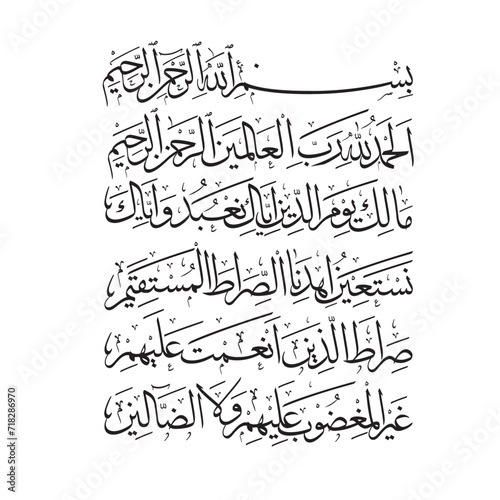 بسم الله الرحمن الرحيم
الحمد لله رب العالمين الرحمن الرحيم
مالك يوم الدين إياك نعبد وإياك
نستعين اهدنا الصراط المستقيم
صراط الذين أنعمت عليهم
غير المغضوب عليهم ولا الضالين
Adobe Stock | #718286970